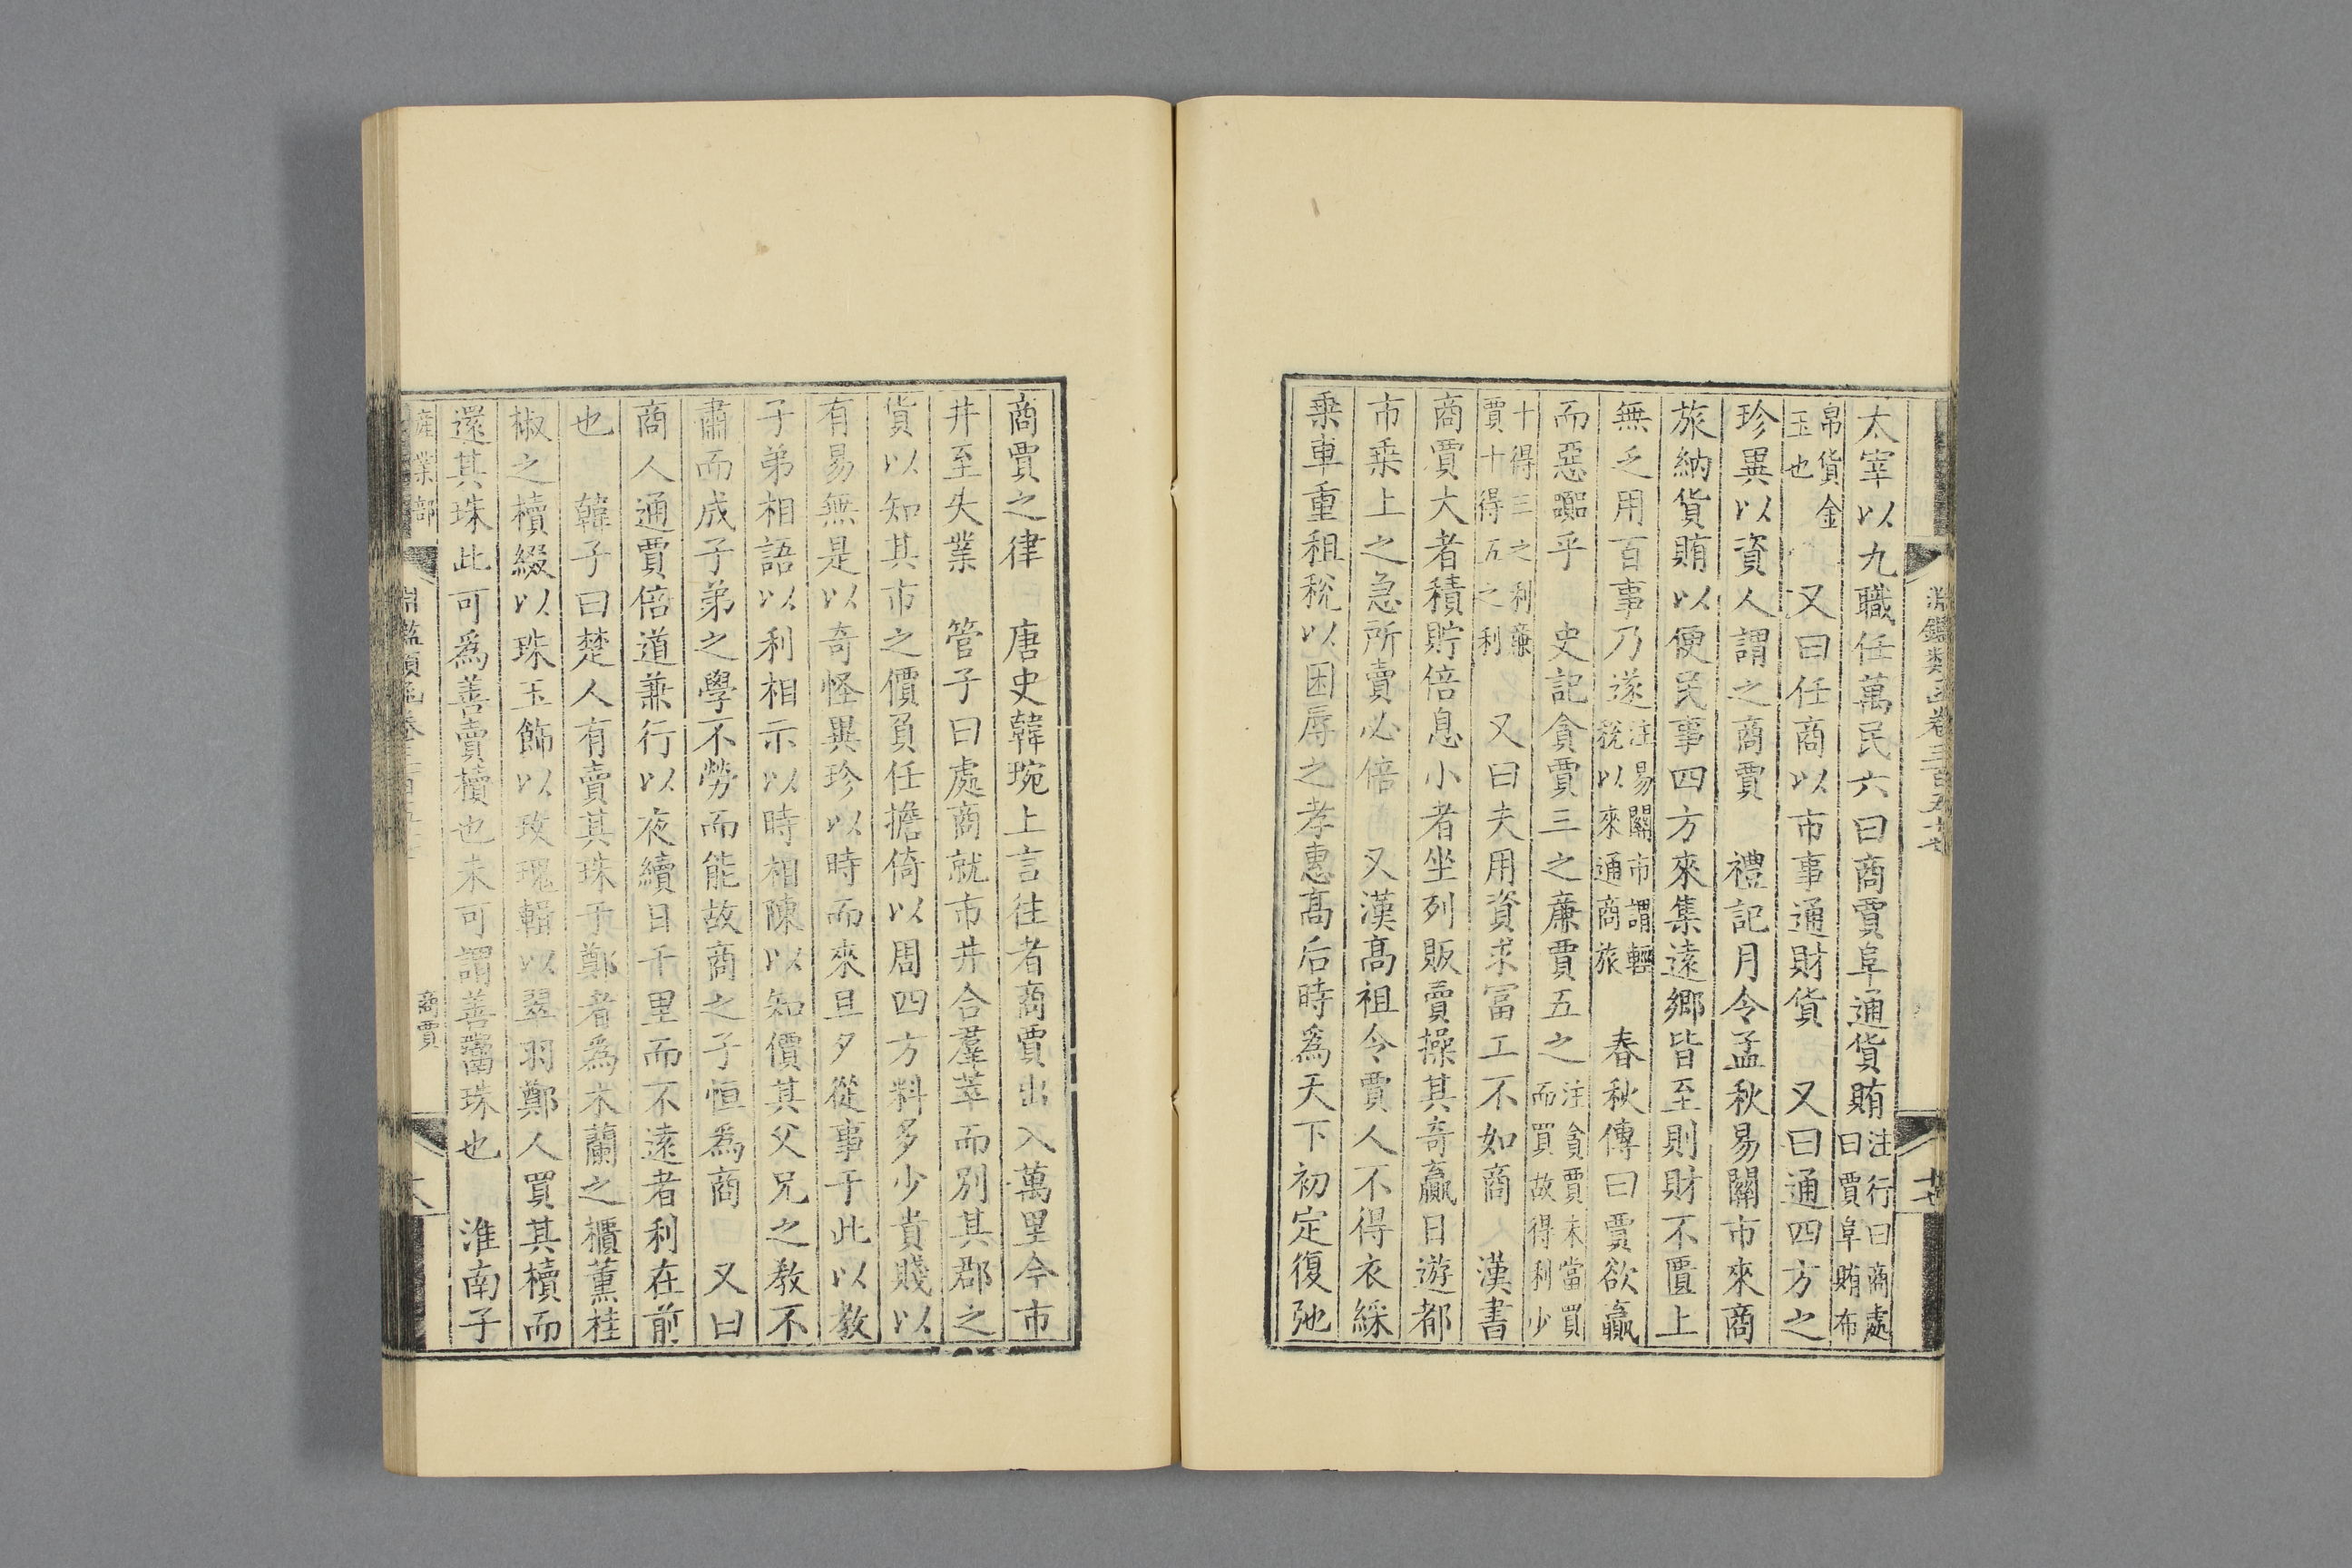 太宰以九職任萬民六曰商賈阜通貨賄注行曰商處曰賈阜賄布
帛貨金玉也　又曰任商以市事通財貨　又曰通四方之
珍異以資人謂之商賈　禮記月令孟秋易關市來商
旅納貨賄以便民事四方來集遠鄉皆至則財不匱上
無乏用百事乃遂注易關市謂輕稅以來通商旅　春秋傳曰賈欲贏
而惡嚻乎　史記貪賈三之廉賈五之注貪賈未當買而買故得利少
十得三之利廉賈十得五之利　又曰夫用資求富工不如商　漢書
商賈大者積貯倍息小者坐列販賣操其奇贏日遊都
市乗上之急所賣必倍　又漢髙祖令賈人不得衣綵
乗車重租稅以困辱之孝惠髙后時爲天下初定復弛
商賈之律　唐史韓琬上言往者商賈出入萬里今市
井至失業　管子曰處商就市井合羣萃而別其郡之
貨以知其市之價負任擔倚以周四方料多少貴賤以
有易無是以奇怪異珍以時而來旦夕從事于此以敎
子弟相語以利相示以時相陳以知價其父兄之敎不
肅而成子弟之學不勞而能故商之子恒爲商　又曰
商人通賈倍道兼行以夜續日千里而不遠者利在前
也　韓子曰楚人有賣其珠于鄭者爲木蘭之櫃薰桂
椒之櫝綴以珠玉飾以玫瑰輯以翠羽鄭人買其櫝而
還其珠此可爲善賣櫝也未可謂善鬻珠也　淮南子
產業部
商賈